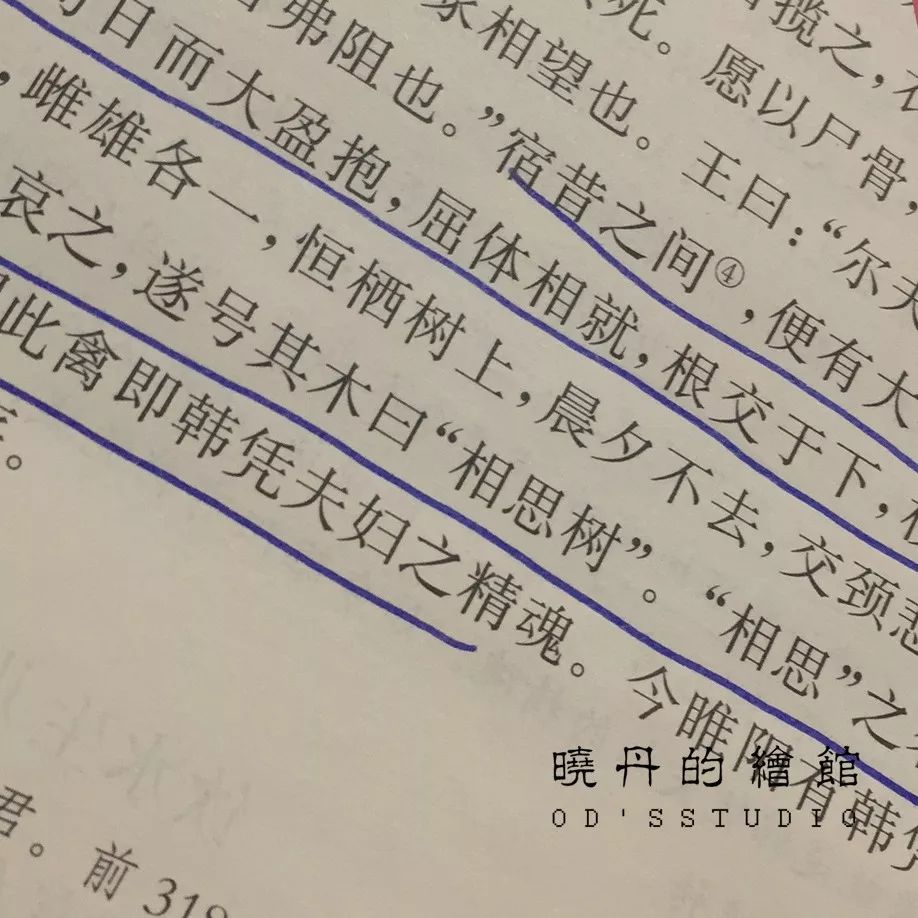 揽之,
死。愿以尸骨,
相望也。王曰:“尔夫
弗阻也。”宿昔之间④,便有大
日而大盈抱,屈体相就,根交于下,
,雌雄各一,恒栖树上,晨夕不去,交颈悲
哀之,遂号其木曰“相思树”。“相思”之
此禽即韩凭夫妇之精魂。今睢阳有韩
君。前 318
曉丹的繪館
OD'SSTUDIO